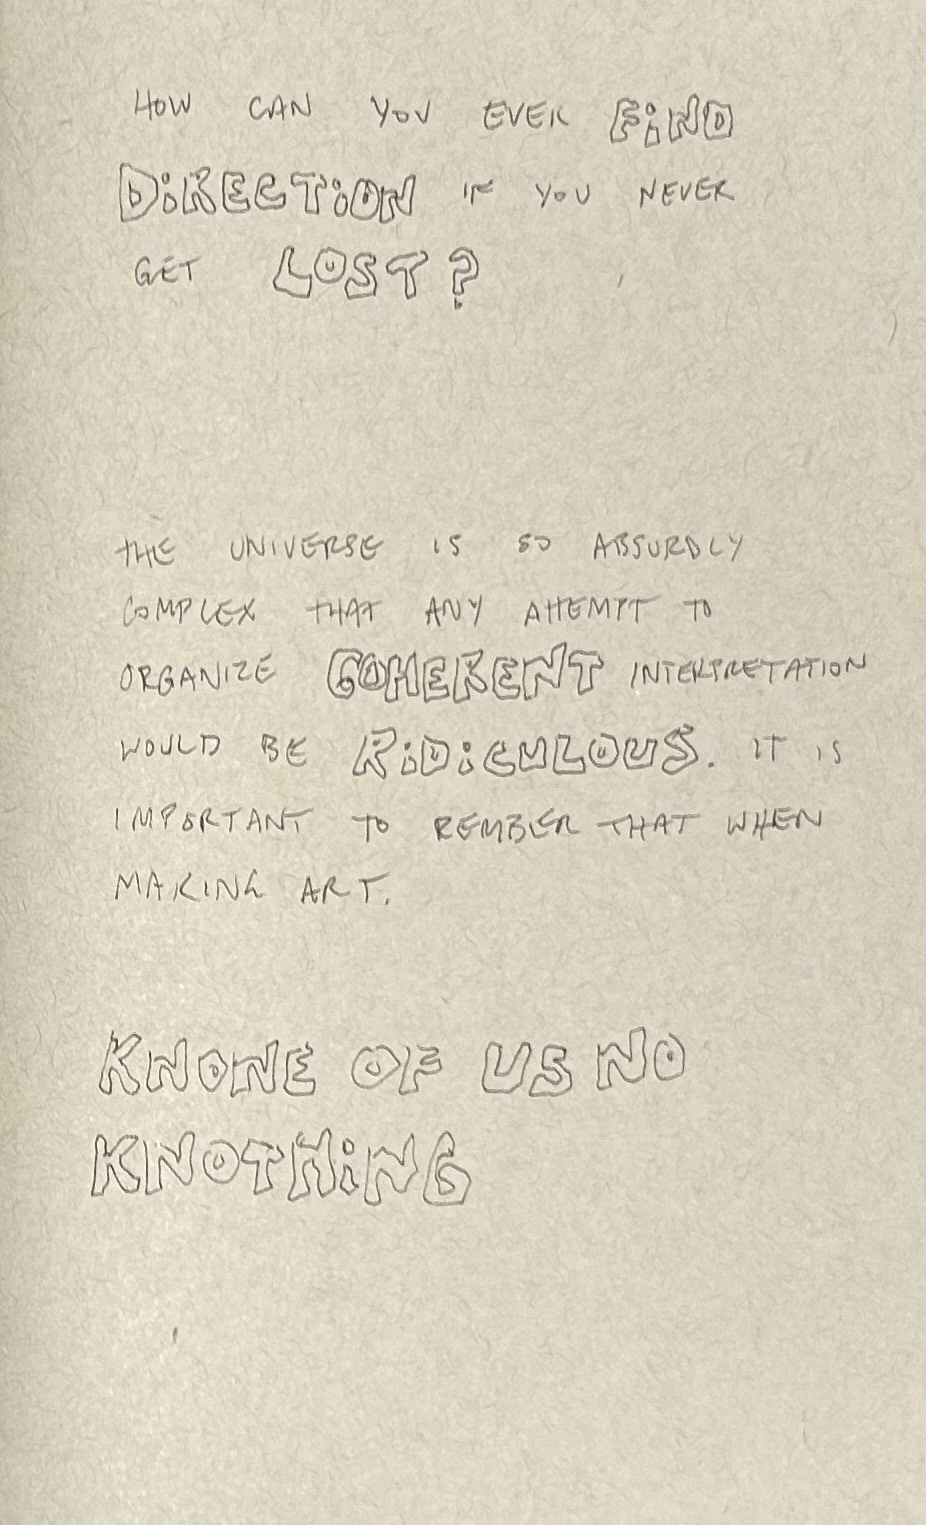 HOW CAN YOU EVER FiND
DiRECTiON IF YOU NEVER
GET LOST?
THE UNIVERSE IS SO ABSURDLY
COMPLEX THAT ANY ATTEMPT TO
ORGANIZE COHERENT INTERPRETATION
WOULD BE RiDiCULOUS. IT IS
IMPORTANT TO REMBER THAT WHEN
MAKING ART.
KNONE OF US NO
KNOTHiNG